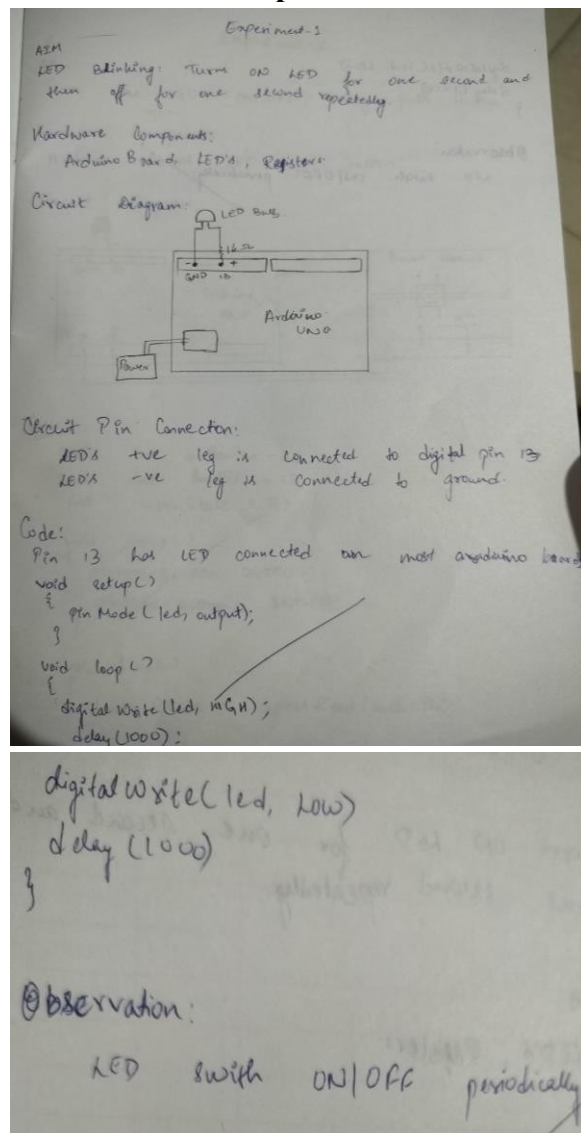 Experiment-1
AIM
LED Blinking: Turns ON LED for one second and
then off for one second repeatedly.
Hardware Components:
Arduino Board, LED's, Registers
Circuit Diagram:
LED Bulb
1k Ω
- +
GND 13
Arduino
UNO
Power
Circuit Pin Connection:
LED's +ve leg is connected to digital pin 13
LED's -ve leg is connected to ground.
Code:
Pin 13 has LED connected on most araduino board
void setup()
{
pin Mode (led, output);
}
void loop()
{
digital Write (led, HIGH);
delay (1000);
digital write( led, LOW)
delay (1000)
}
Observation:
LED swith ON/OFF periodically